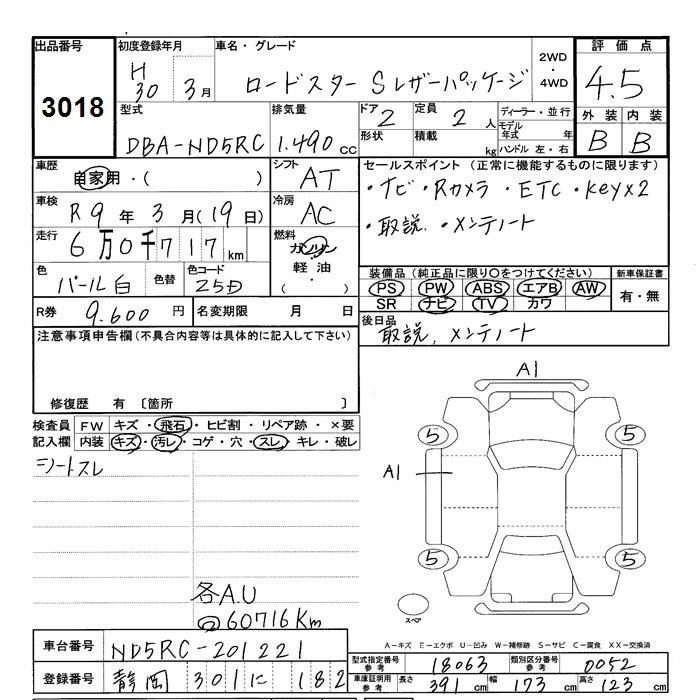 出品番号 初度登録年月 車名・グレード 2WD・4WD 評価点
3018 H30 3月 ロードスター Sレザーパッケージ 4.5
型式 排気量 ドア 2 定員 2人 ディーラー・並行 外装 内装
DBA-ND5RC 1.490cc 形状 積載 kg モデル年式 年 ハンドル 左・右 B B
車歴 自家用・( ) シフト AT セールスポイント (正常に機能するものに限ります)
車検 R9年3月(19日) 冷房 AC ・ナビ・Rカメラ・ETC・Key×2
・取説.・メンテノート
走行 6万0千717km 燃料 ガソリン・軽油・( )
色 パール白 色替 色コード 25D
装備品(純正品に限り○をつけてください) 新車保証書
PS PW ABS エアB AW 有・無
SR ナビ TV カワ
R券 9.600円 名変期限 月 日
後日品 取説. メンテノート
注意事項申告欄(不具合内容等は具体的に記入して下さい)
修復歴 有 〔箇所 〕
検査員記入欄 FW キズ・飛石・ヒビ割・リペア跡・×要
内装 キズ・汚レ・コゲ・穴・スレ・キレ・破レ
シートスレ
A1
5 5
A1
5 5
スペア
各A.U
60716Km
A-キズ E-エクボ U-凹み W-補修跡 S-サビ C-腐食 XX-交換済
車台番号 ND5RC-201221
登録番号 静岡 301に 182
型式指定番号参考 18063 類別区分番号参考 0052
車庫証明用参考 長さ 391cm 幅 173cm 高さ 123cm